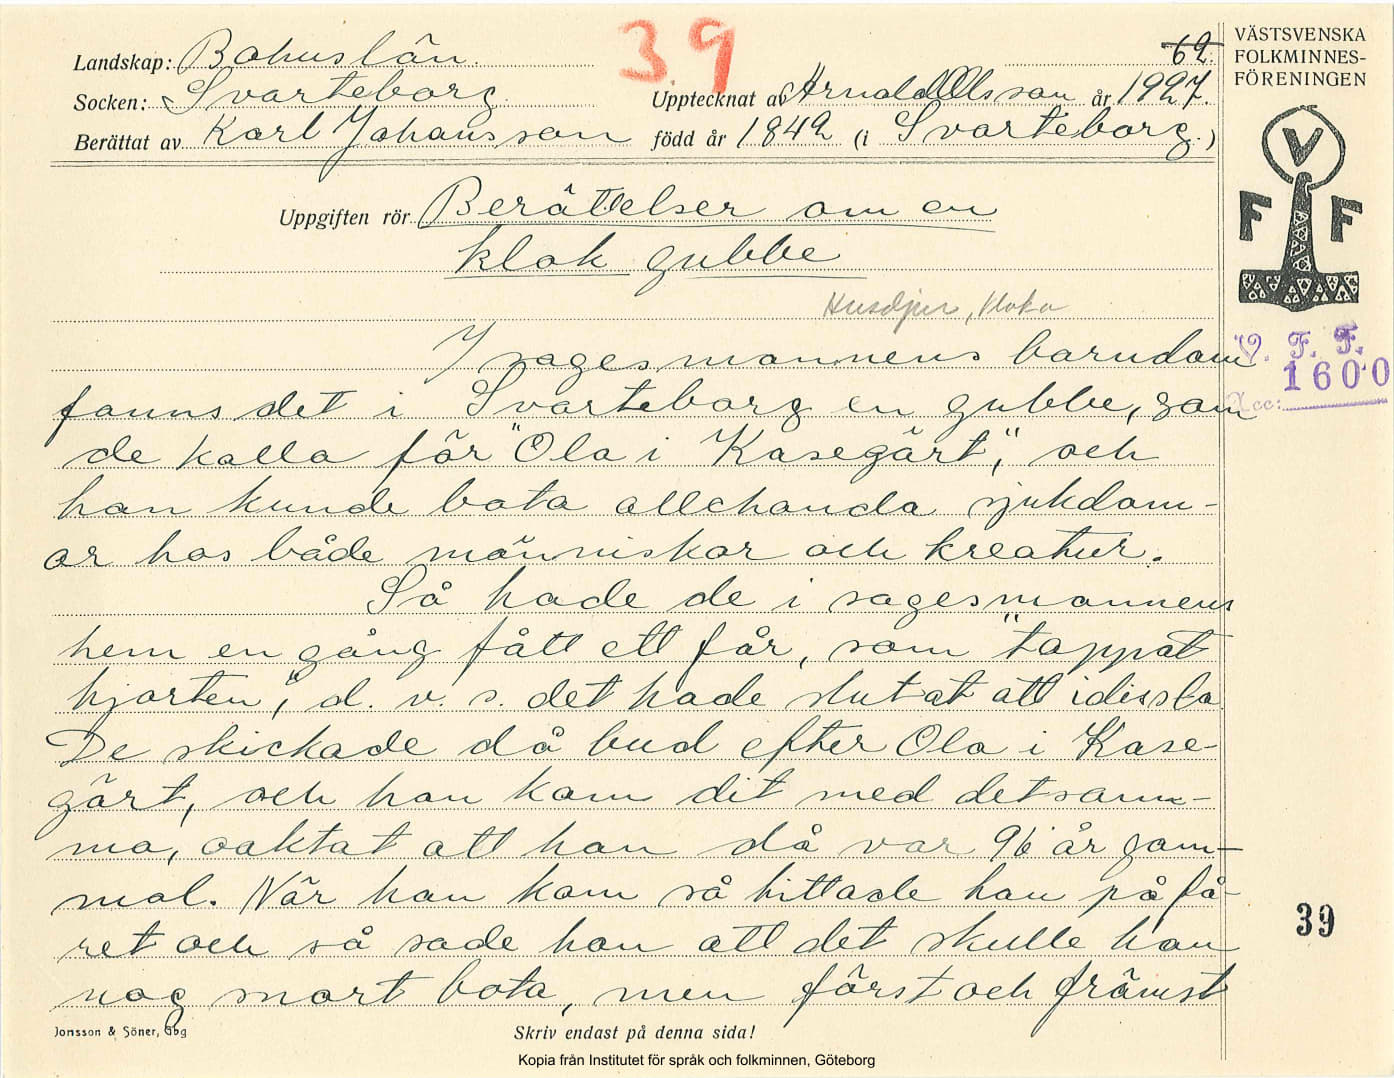 39
62.
Landskap: Bohuslän.
Socken: Svarteborg.
Upptecknat av Arnold Olsson år 1927.
Berättat av Karl Johansson född år 1842 (i Svarteborg.)
Uppgiften rör Berättelser om en
klok gubbe
Husdjur, kloka
I sagesmannens barndom
fanns det i Svarteborg en gubbe, som
de kalla för "Ola i Kasegärt", och
han kunde bota allehanda sjukdom-
ar hos både människor och kreatur.
Så hade de i sagesmannens
hem en gång fått ett får, som "tappat
hjorten", d. v. s. det hade slutat att idissla.
De skickade då bud efter Ola i Kase-
gärt, och han kom dit med detsam-
ma, oaktat att han då var 96 år gam-
mal. När han kom så tittade han på få-
ret och så sade han att det skulle han
nog snart bota, men först och främst
Jonsson & Söner, Gbg
Skriv endast på denna sida!
Kopia från Institutet för språk och folkminnen, Göteborg
VÄSTSVENSKA
FOLKMINNES-
FÖRENINGEN
V
F F
V. F. F.
1600
Acc:
39